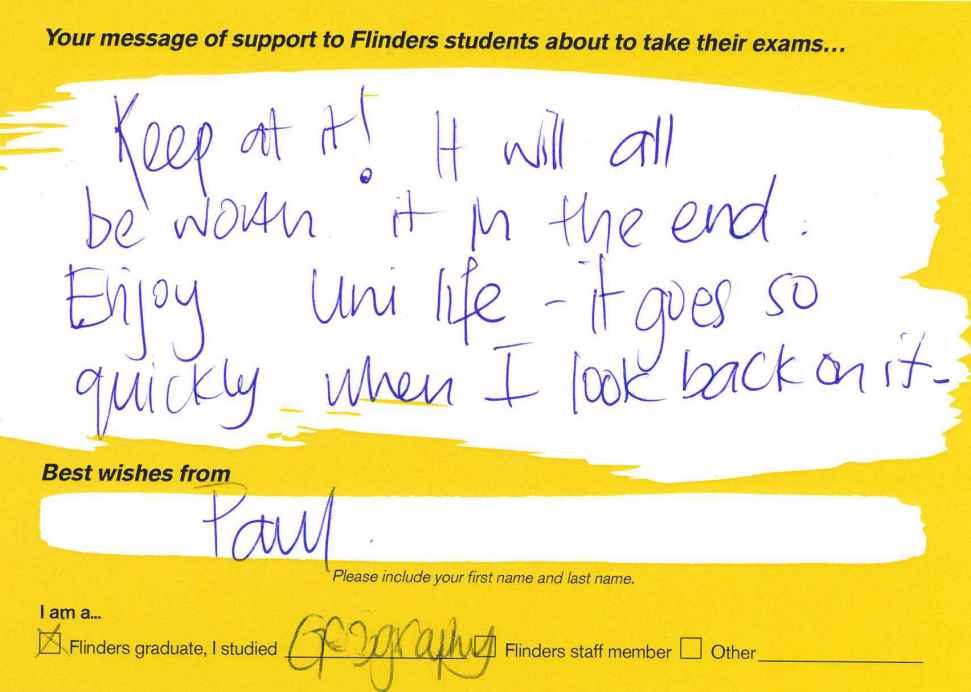 Your message of support to Flinders students about to take their exams...
Keep at it! It will all
be worth it in the end.
Enjoy Uni life - it goes so
quickly when I look back on it-
Best wishes from
Paul.
Please include your first name and last name.
I am a...
Flinders graduate, I studied Geography Flinders staff member Other